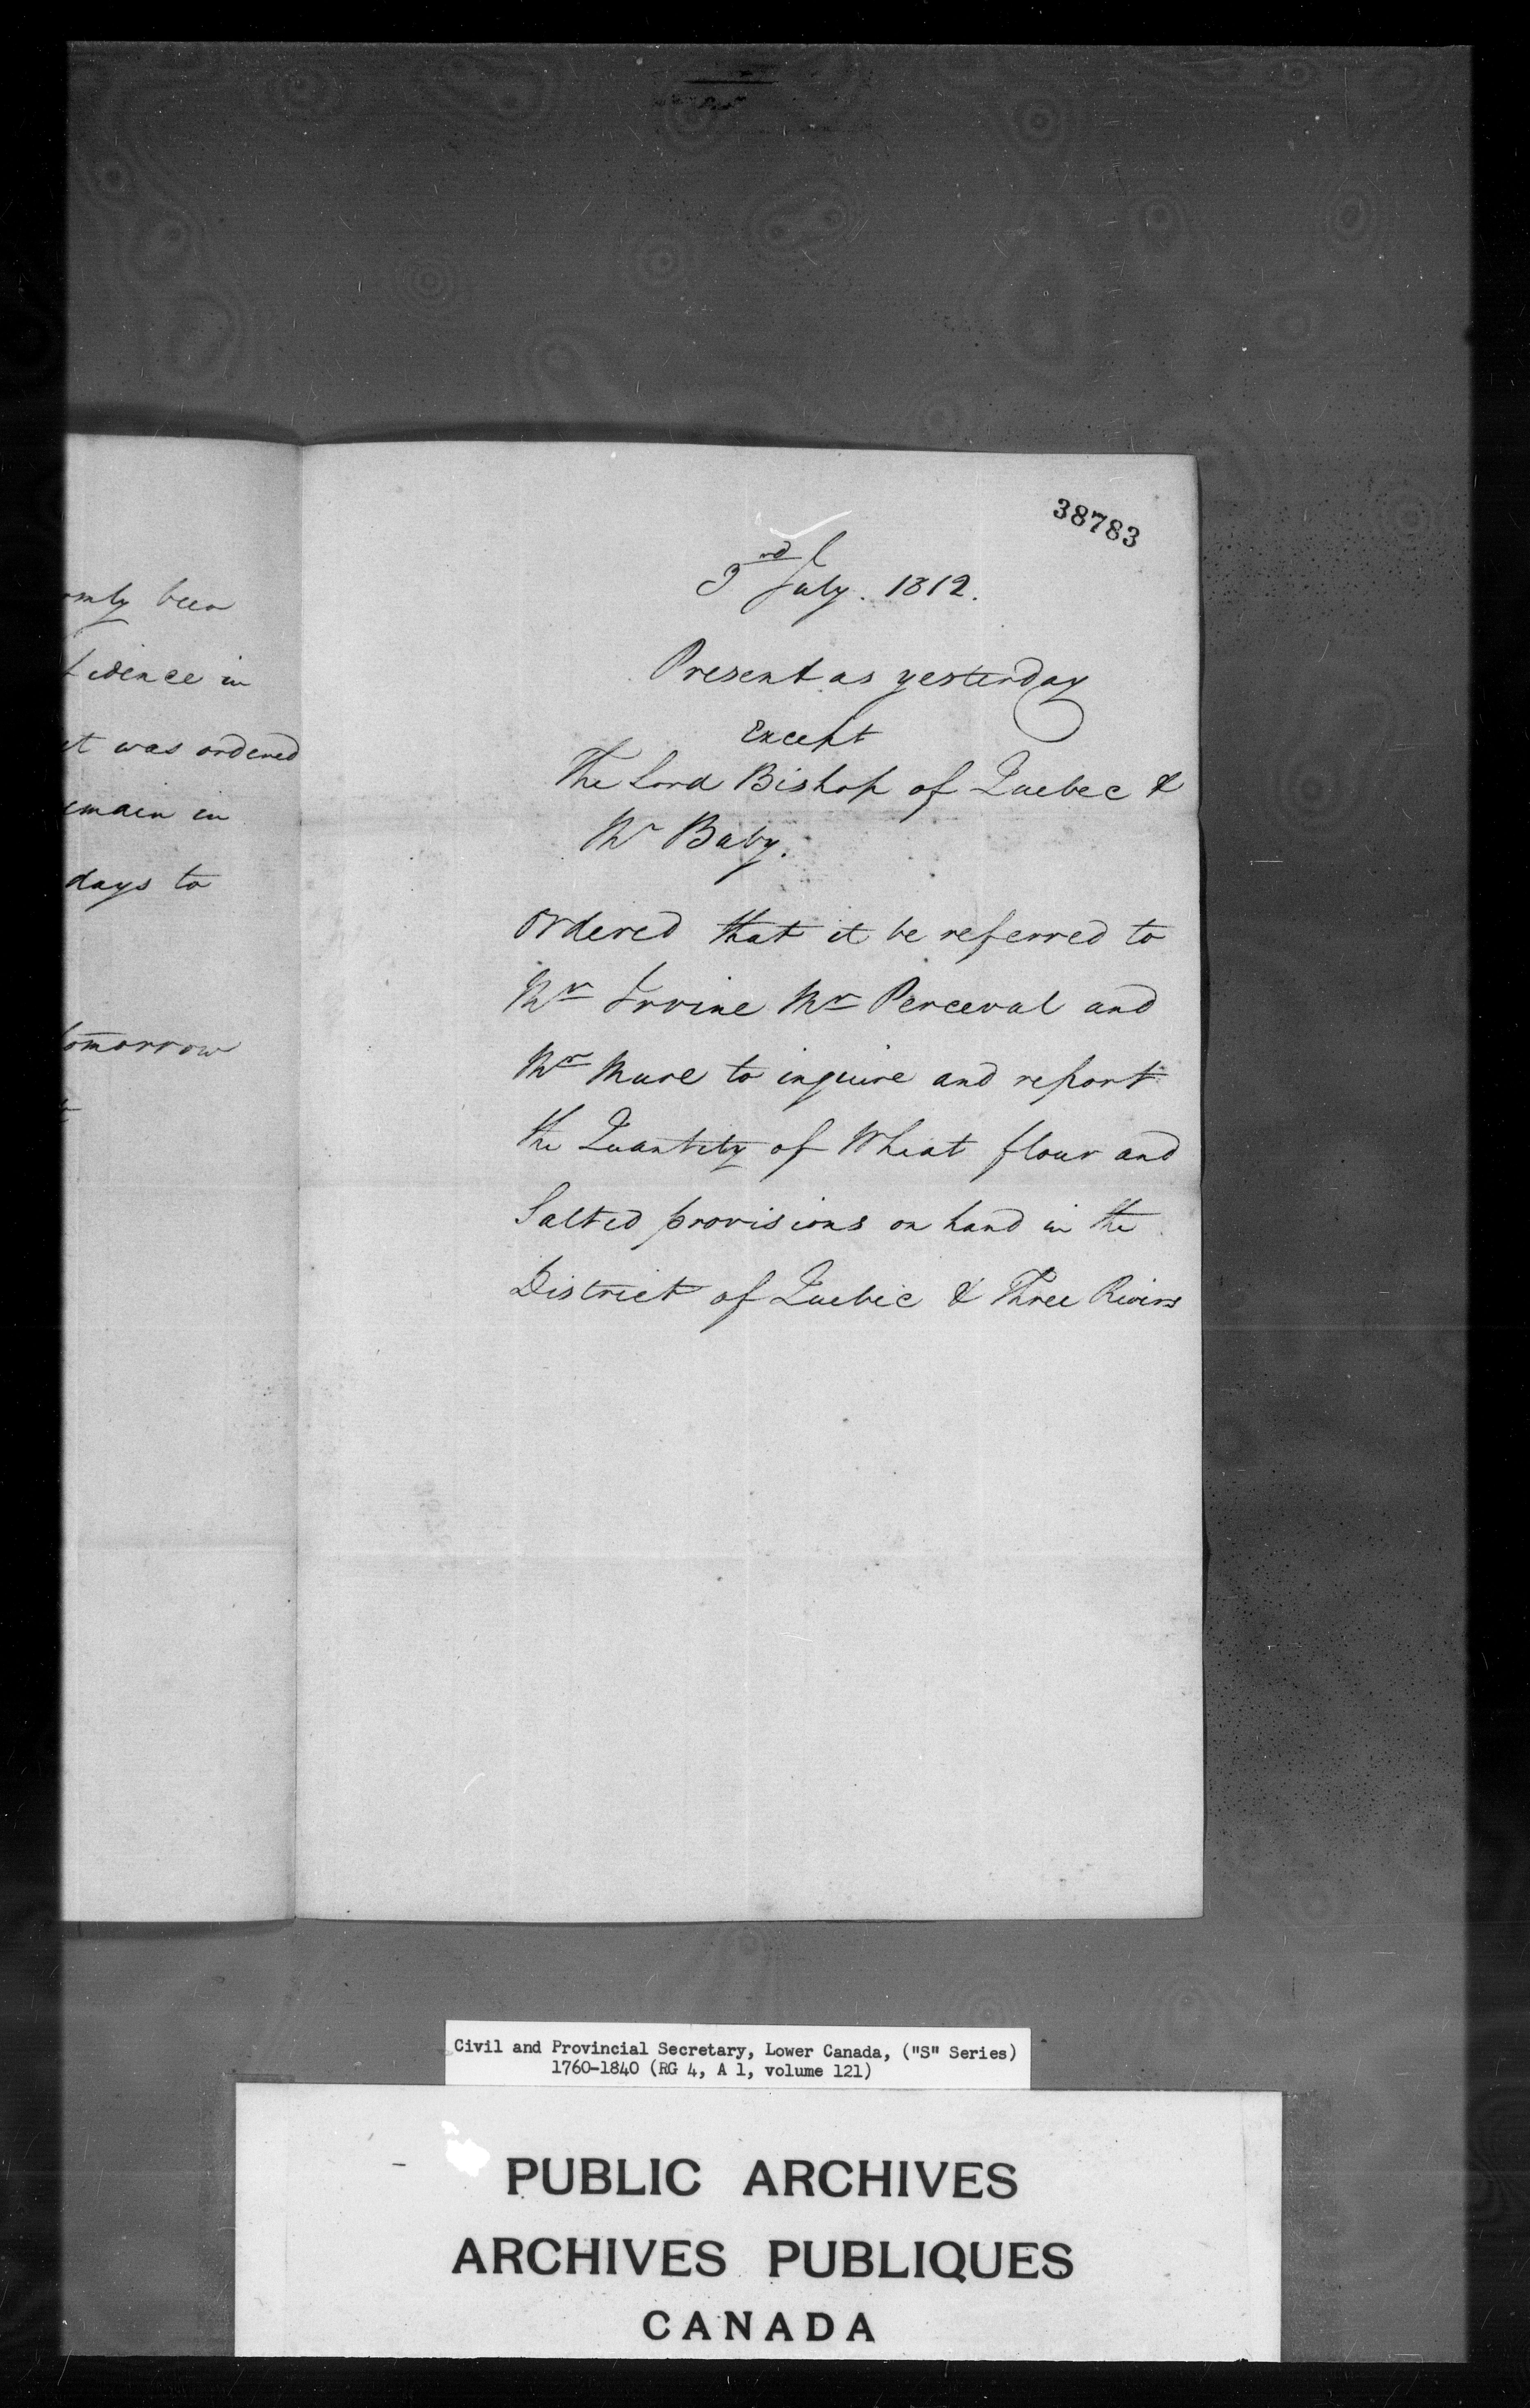 38783
3rd July. 1812.
Present as yesterday
Except
The Lord Bishop of Quebec &
Mr Baby.
Ordered that it be referred to
Mr Irvine Mr Perceval and
Mr Mure to inquire and report
the Quantity of Wheat flour and
Salted provisions on hand in the
District of Quebec & Three Rivers
been
in
it was ordered
in
days to
tomorrow
Civil and Provincial Secretary, Lower Canada, ("S" Series)
1760-1840 (RG 4, A 1, volume 121)
PUBLIC ARCHIVES
ARCHIVES PUBLIQUES
CANADA